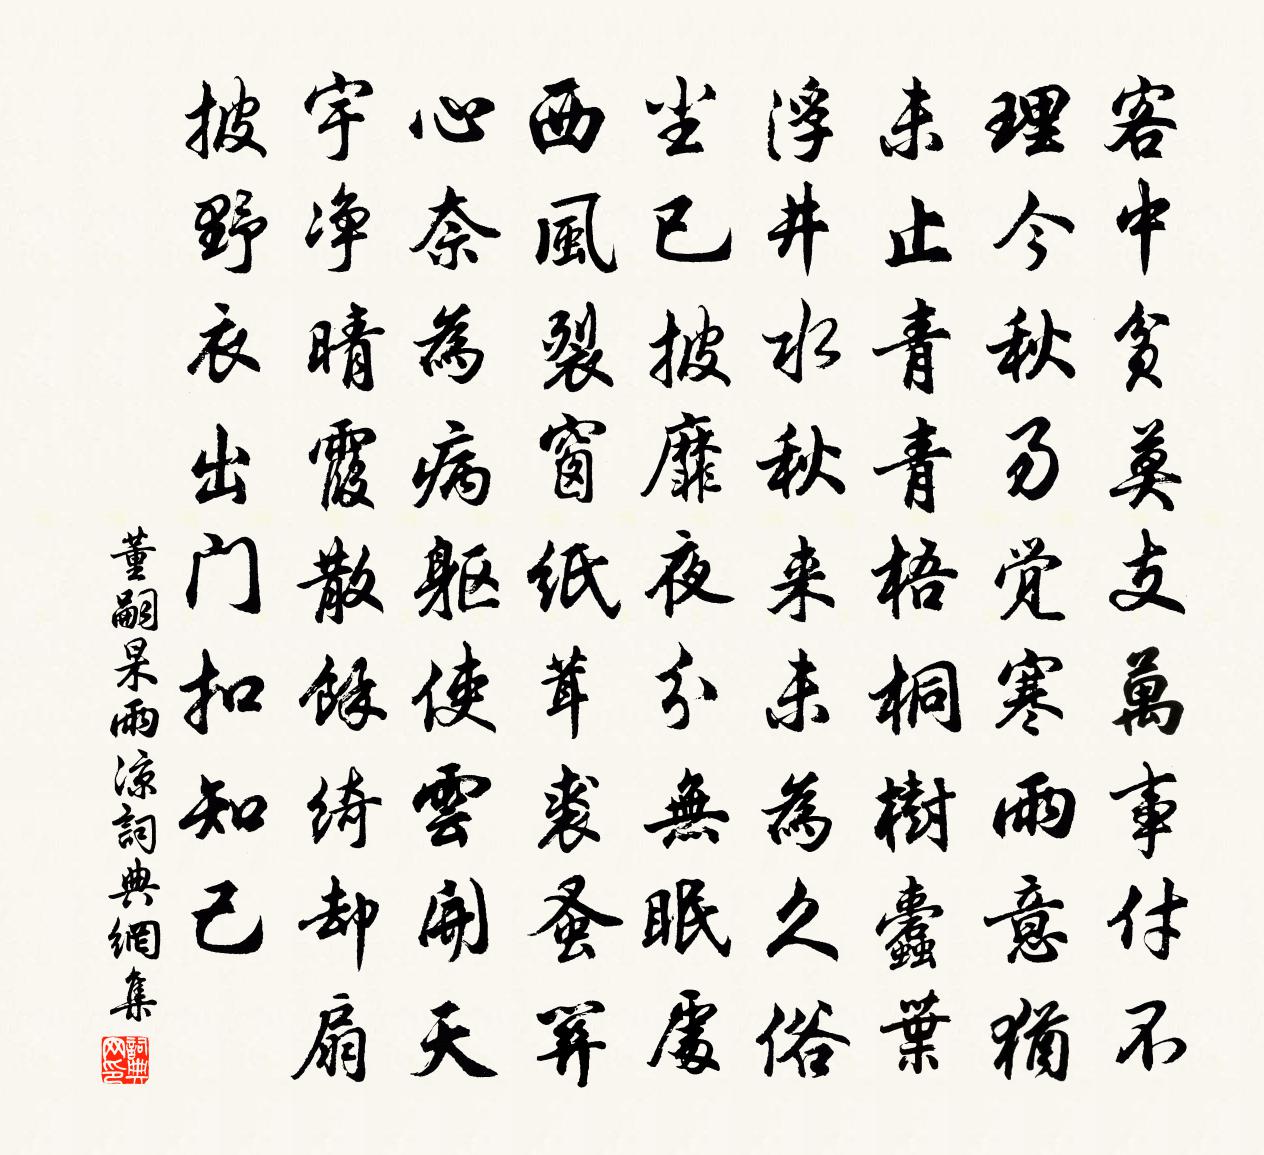 客中貧莫支萬事付不
理今秋易覺寒雨意猶
未止青青梧桐樹蠹葉
浮井水秋来未為久俗
尘已披靡夜分無眠處
西風裂窗紙茸裘蚤關
心奈為病軀使雲開天
宇净晴霞散餘綺却扇
披野衣出门扣知己
董嗣杲雨凉詞典網集
詞典网印